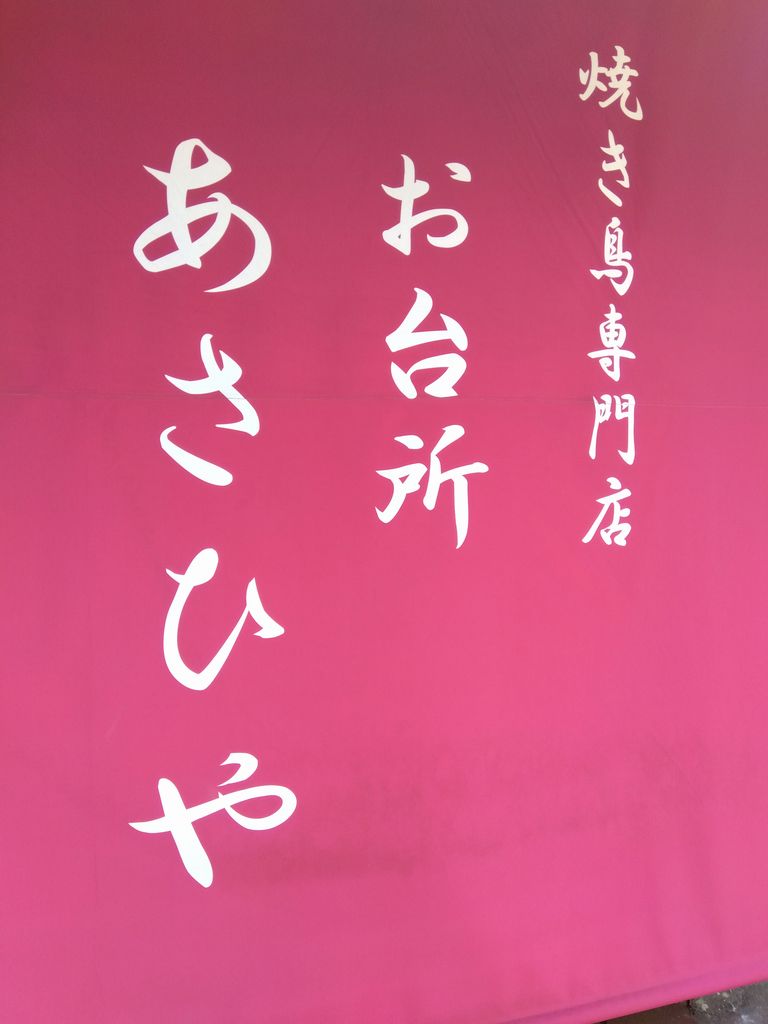 焼き鳥専門店
お台所
あさひや